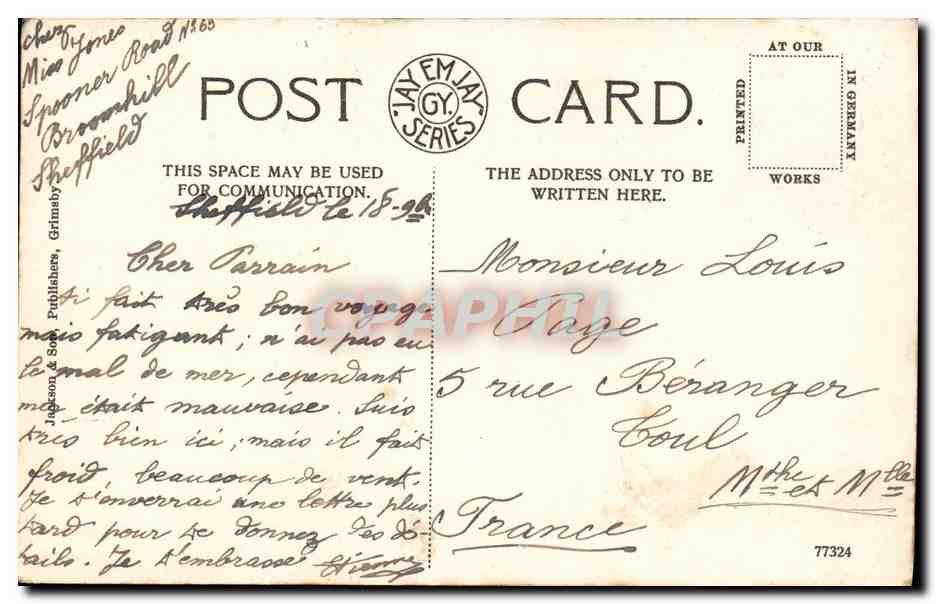 chez
Miss Jones
Spooner Road No 69
Broomhill
Sheffield
POST CARD.
JAY EM JAY
GY.
SERIES
AT OUR
PRINTED
IN GERMANY
WORKS
THIS SPACE MAY BE USED
FOR COMMUNICATION.
THE ADDRESS ONLY TO BE
WRITTEN HERE.
Jackson & Son, Publishers, Grimsby
Sheffield le 18-9b
Cher Parrain
ai fait très bon voyage
mais fatigant; n'ai pas eu
le mal de mer, cependant
mer était mauvaise. Suis
très bien ici; mais il fait
froid, beaucoup de vent.
Je t'enverrai une lettre plus
tard pour te donnez des dé-
tails. Je t'embrasse Etienne
Monsieur Louis
Page
5 rue Béranger
Toul
Mdhe et Mlle
France
77324
CPAPHIL